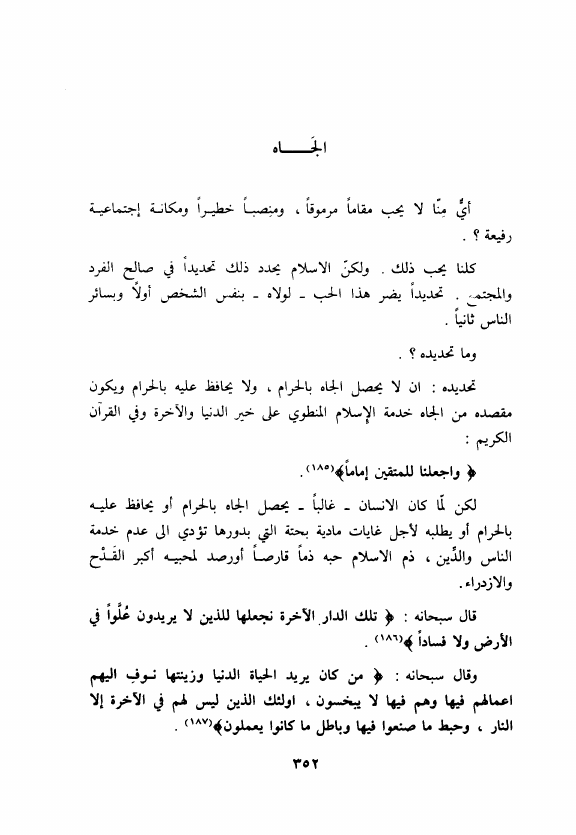 الجَـــــاه
أيُّ مِنّا لا يحب مقاماً مرموقاً ، ومنصبـاً خطيـراً ومكانـة إجتماعيـة
رفيعة ؟ .
كلنا يحب ذلك . ولكنّ الاسلام يحدد ذلك تحديداً في صالح الفرد
والمجتمع . تحديداً يضر هذا الحب ـ لولاه ـ بنفس الشخص أولاً وبسائر
الناس ثانياً .
وما تحديده ؟ .
تحديده : ان لا يحصل الجاه بالحرام ، ولا يحافظ عليه بالحرام ويكون
مقصده من الجاه خدمة الإسلام المنطوي على خير الدنيا والآخرة وفي القرآن
الكريم :
﴿ واجعلنا للمتقين إماماً﴾(١٨٥) .
لكن لمّا كان الانسان ـ غالباً ـ يحصل الجاه بالحرام أو يحافظ عليـه
بالحرام أو يطلبه لأجل غايات مادية بحتة التي بدورها تؤدي الى عدم خدمة
الناس والدِّين ، ذم الاسلام حبه ذماً قارصـاً أورصد لمحبيـه أكبر القَـدْح
والازدراء .
قال سبحانه : ﴿ تلك الدار الآخرة نجعلها للذين لا يريدون عُلَّواً في
الأرض ولا فساداً ﴾(١٨٦) .
وقال سبحانه : ﴿ من كان يريد الحياة الدنيا وزينتها نـوفِ اليهم
اعمالهم فيها وهم فيها لا يبخسون ، اولئك الذين ليس لهم في الآخرة إلا
النار ، وحبط ما صنعوا فيها وباطل ما كانوا يعملون﴾(١٨٧) .
٣٥٢